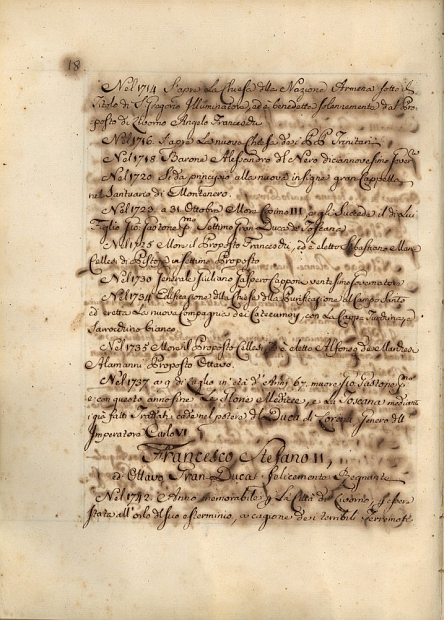 18
Nel 1714 S'apre La Chiesa della Nazione Armena sotto il
Titolo di S. Gregorio Illuminatore, ed è benedetta solennemente dal Pro
posto di Livorno Angelo Franceschi
Nel 1716. S'apre La nuova Chiesa de i PP. Trinitarj
Nel 1718 Barone Alessandro del Nero diciannovesimo Gover.
Nel 1720 Si dà principio alla nuova insigne gran Cappella
nel Santuario di Montenero.
Nel 1723 a 31 Ottobre Mora Cosimo III a gli Succede il di Lui
Figlio Gio: Gastone pmo Settimo Gran Duca di Toscana
Nel 1725 More il Proposto Franceschi, ed è eletto Sebastiano
Cellesi di Pistoja Settimo Proposto
Nel 1730 Generale Giuliano Gaspero Capponi ventesimo Governatore
Nel 1734 Edificazione della Chiesa della Purificazione al Campo Santo
ed eretta La nuova Compagnia dei Catecumeni, con La Cappa Turchina, e
bianco
Nel 1735 More il Proposto Cellesi è eletto Alfonso de Marchesi
Alamanni Proposto Ottavo
Nel 1737 a 9 di Luglio in età d'Anni 67. muore Gio: Gastone
e con questo anno fine Le Glorie Medicee, e La Toscana mediante
i già fatti Trattati, cade nel potere del Duca di Lorena Genero dell'
Imperatore Carlo VI
Francesco Stefano II,
Ottavo Gran Duca felicemente Regnante
Nel 1742 Anno memorabile p La Città di Livorno, p essere
stata all'orlo del suo esterminio, a cagione de i terribili Terremoti